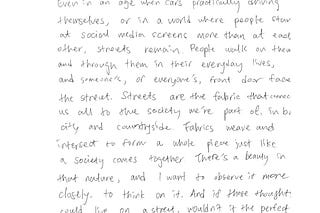 Even in an age when cars practically driving
themselves, or in a world where people stare
at social media screens more than at each
other, streets remain. People walk on them
and through them in their everyday lives,
and someone's, or everyone's, front door face
the street. Streets are the fabric that
us all to the society we're part of, in
city and countryside. Fabrics weave and
intersect to form a whole piece just like
a society comes together. There's a beauty in
that nature, and I want to observe it more
closely, to think on it. And if those thought
could live on a street, wouldn't it the perfect